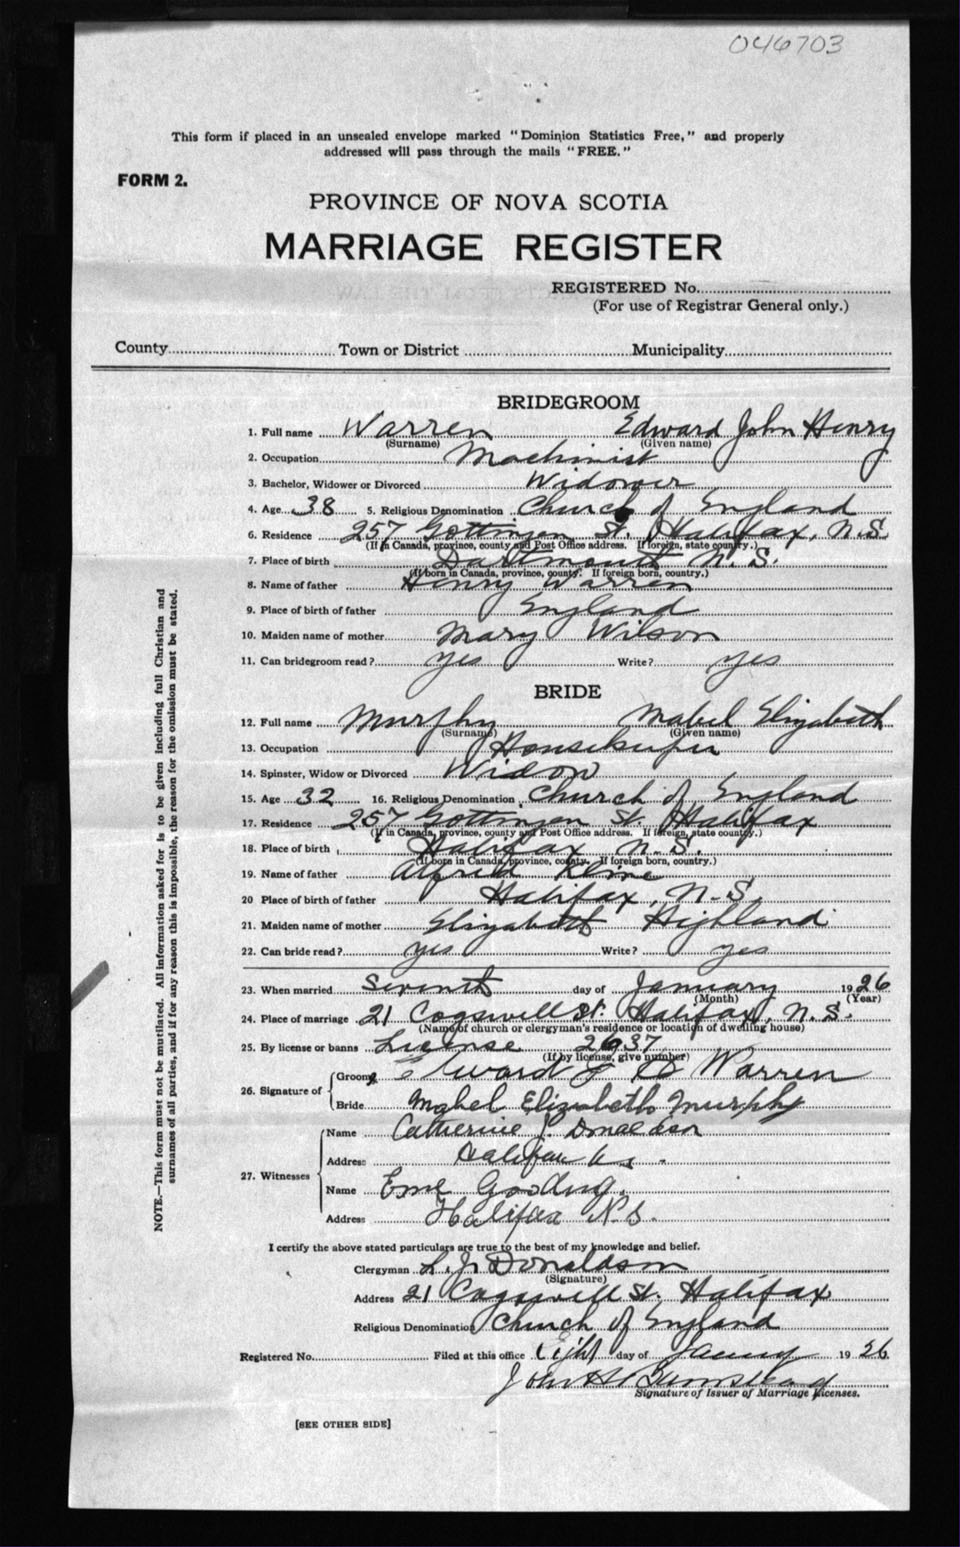 046703
This form if placed in an unsealed envelope marked "Dominion Statistics Free," and properly
addressed will pass through the mails "FREE."
FORM 2.
PROVINCE OF NOVA SCOTIA
MARRIAGE REGISTER
REGISTERED No.
(For use of Registrar General only.)
County Town or District Municipality
BRIDEGROOM
1. Full name Warren Edward John Henry
(Surname) (Given name)
2. Occupation Machinist
3. Bachelor, Widower or Divorced Widower
4. Age 38 5. Religious Denomination Church of England
6. Residence 257 Gottingen St. Halifax, N.S.
(If in Canada, province, county and Post Office address. If foreign, state country.)
7. Place of birth Dartmouth N.S.
(If born in Canada, province, county. If foreign born, country.)
8. Name of father Henry Warren
9. Place of birth of father England
10. Maiden name of mother Mary Wilson
11. Can bridegroom read? yes Write? yes
BRIDE
12. Full name Murphy Mabel Elizabeth
(Surname) (Given name)
13. Occupation Housekeeper
14. Spinster, Widow or Divorced Widow
15. Age 32 16. Religious Denomination Church of England
17. Residence 257 Gottingen St. Halifax
(If in Canada, province, county and Post Office address. If foreign, state country.)
18. Place of birth Halifax N.S.
(If born in Canada, province, county. If foreign born, country.)
19. Name of father Alfred
20 Place of birth of father Halifax, N.S.
21. Maiden name of mother Elizabeth Highland
22. Can bride read? yes Write? yes
23. When married Seventh day of January 1926
(Month) (Year)
24. Place of marriage 21 Cogswell St. Halifax, N.S.
(Name of church or clergyman's residence or location of dwelling house)
25. By license or banns License 26937
(If by license, give number)
26. Signature of Groom Edward J H Warren
Bride Mabel Elizabeth Murphy
27. Witnesses Name Catherine J. Donaldson
Address Halifax N.S.
Name Gooding.
Address Halifax N.S.
I certify the above stated particulars are true to the best of my knowledge and belief.
Clergyman L. J. Donaldson
(Signature)
Address 21 Cogswell St. Halifax
Religious Denomination Church of England
Registered No. Filed at this office day of 1926
John H
Signature of Issuer of Marriage Licenses.
[SEE OTHER SIDE]
NOTE.—This form must not be mutilated. All information asked for is to be given including full Christian and
surnames of all parties, and if for any reason this is impossible, the reason for the omission must be stated.